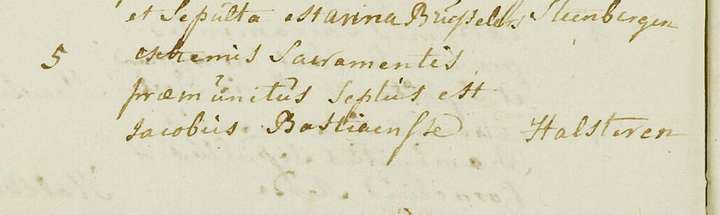 et Sepulta est anna Brusselers Steenbergen
5 extremis Sacramentis
præmunitus Seplus est
Jacobus Bastiaensse Halsteren